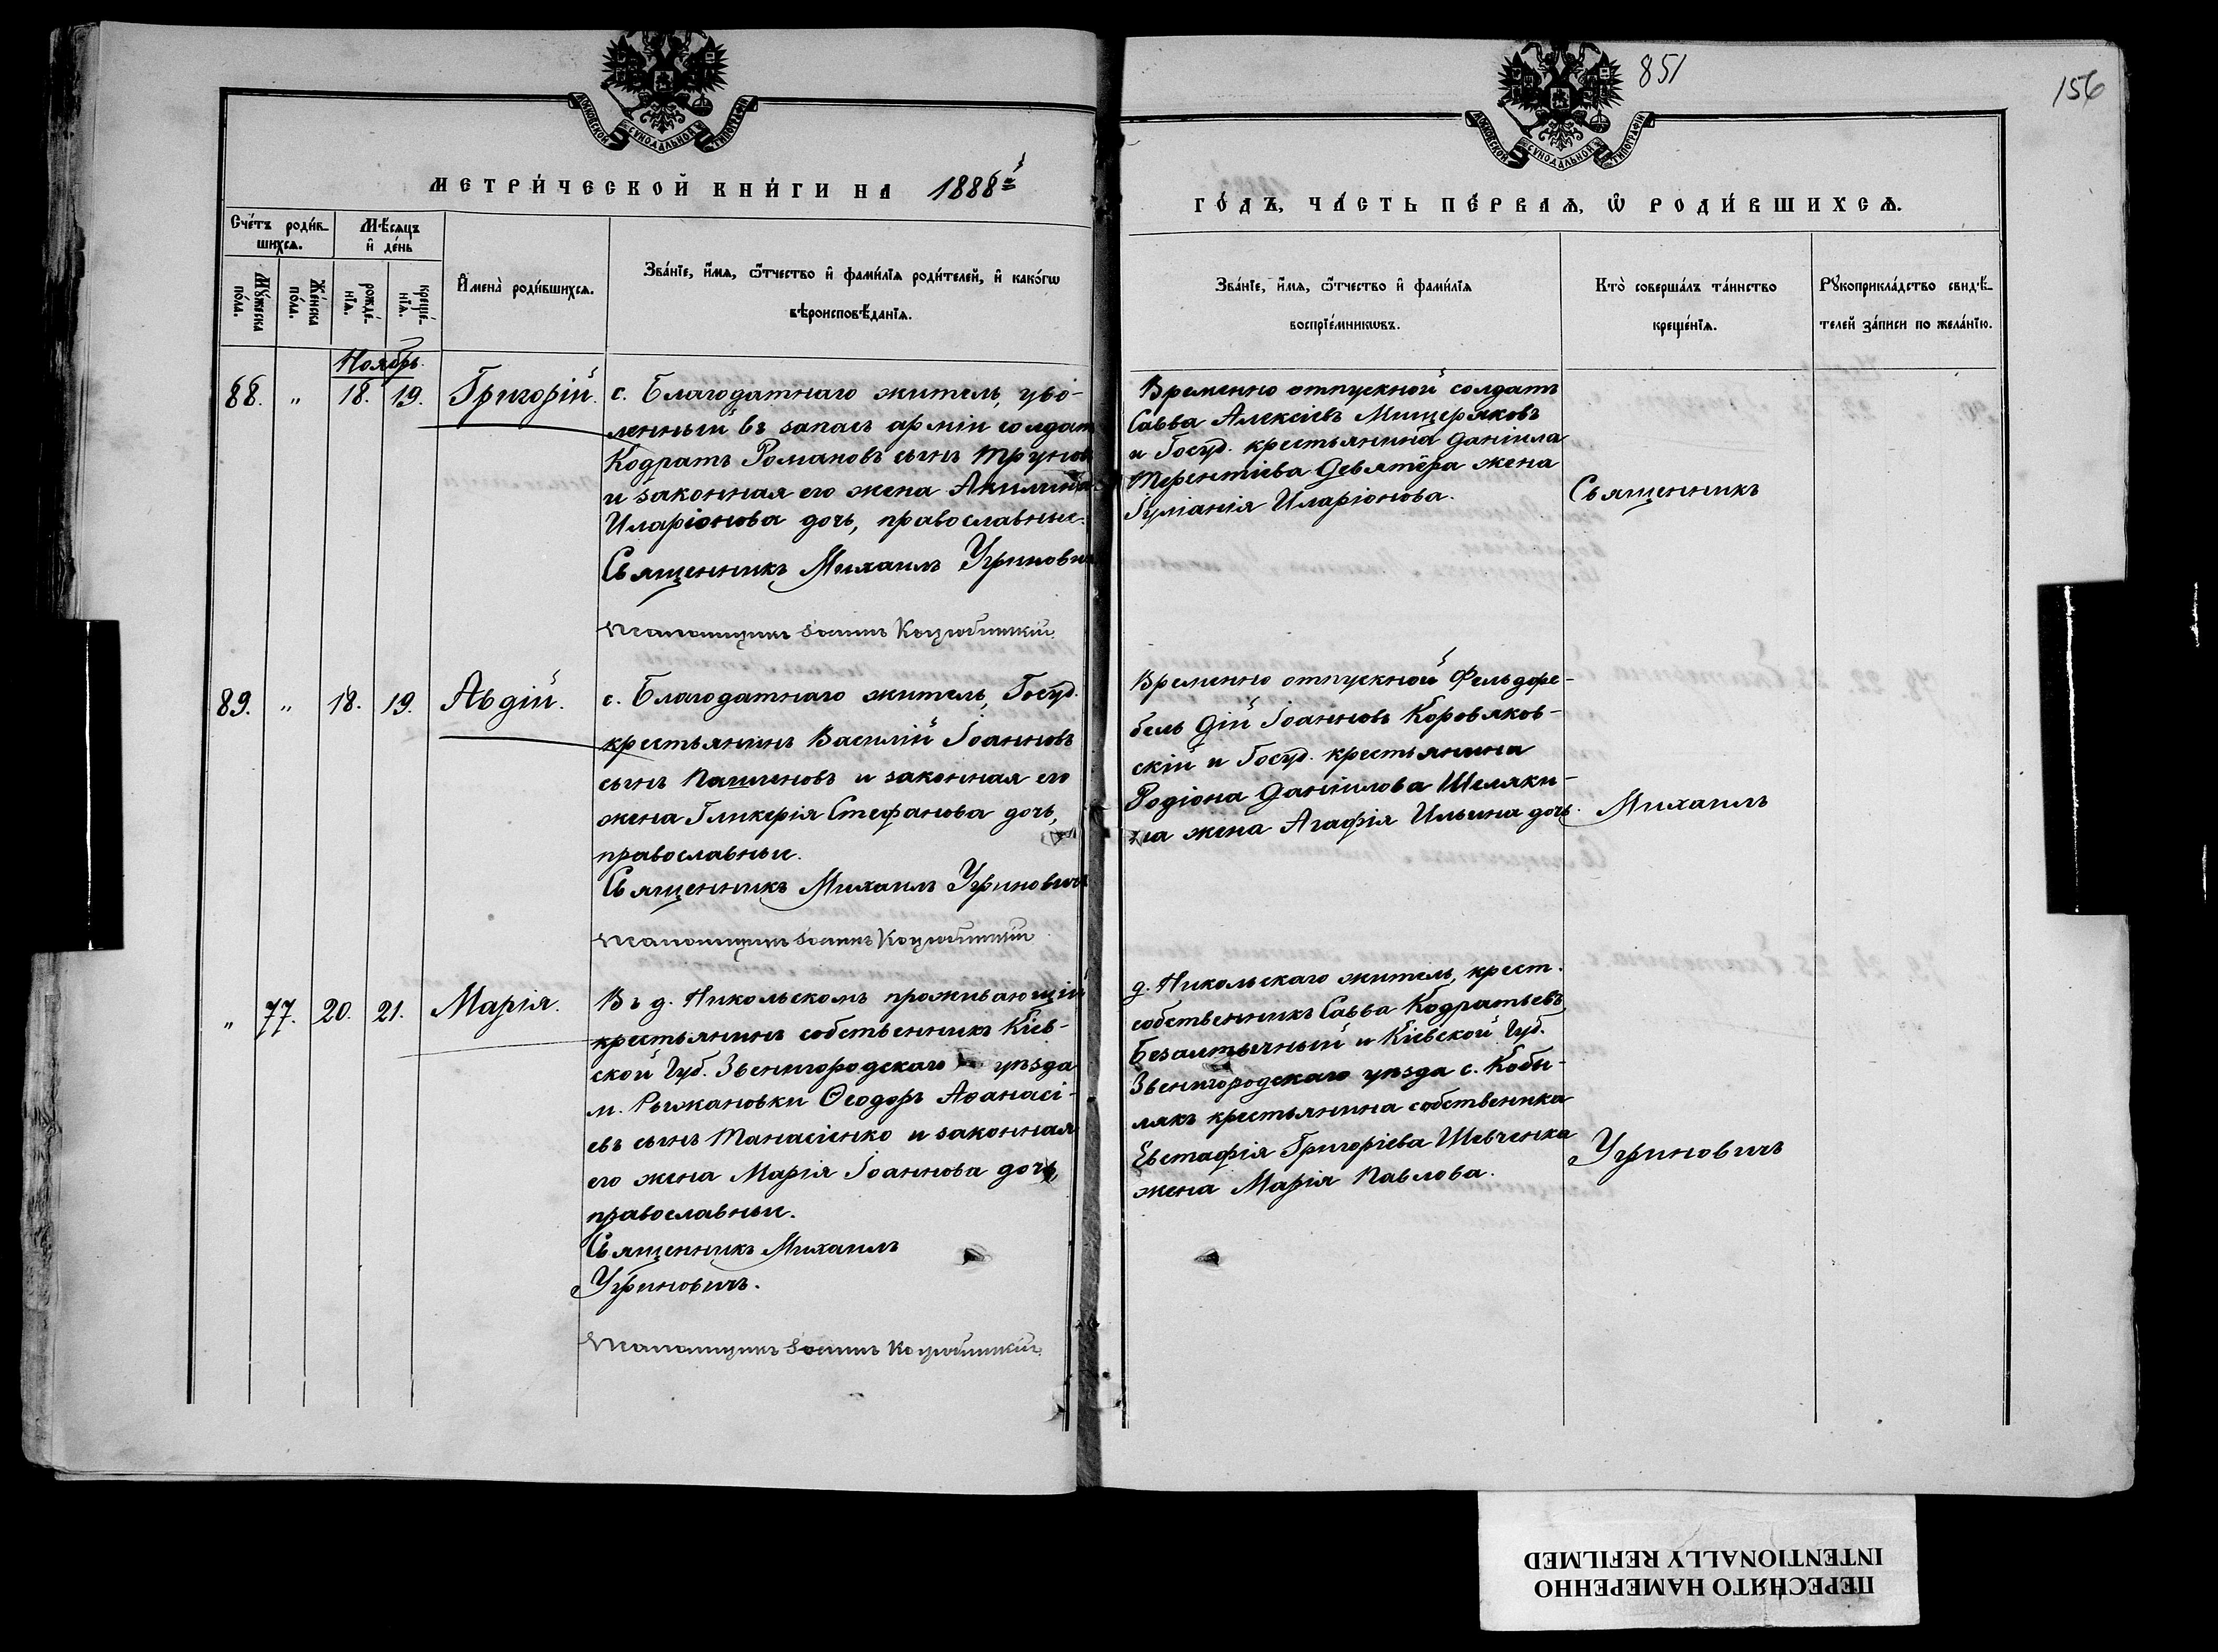 851
156
МОСКОВСКОЙ СѴНОДАЛЬНОЙ ТИПОГРАФІИ
МОСКОВСКОЙ СѴНОДАЛЬНОЙ ТИПОГРАФІИ
МЕТРИ́ЧЕСКОЙ КНИ́ГИ НА 1888й
ГО́ДЪ, ЧА́СТЬ ПЕ́РВАѦ, Ѡ РОДИ́ВШИХСѦ.
Сче́тъ роди́в-
шихсѧ.
Мѣ́сѧцъ
и҆ де́нь
Мꙋ́жеска
по́ла.
Же́нска
по́ла.
рожде́-
нїѧ.
креще́-
нїѧ.
И҆мена̀ роди́вшихсѧ.
Зва́нїе, и҆́мѧ, ѻ҆́тчество и҆ фами́лїѧ роди́телей, и҆ како́гѡ
вѣроисповѣ́данїѧ.
Зва́нїе, и҆́мѧ, ѻ҆́тчество и҆ фами́лїѧ
воспрїе́мникѡвъ.
Кто̀ соверша́лъ та́инство
креще́нїѧ.
Рꙋкоприкла́дство свидѣ́-
телей за́писи по жела́нїю.
Ноябрь.
88. " 18. 19. Григорій.
с. Благодатнаго житель, уво-
ленный въ запасъ арміи солдат
Кодратъ Романовъ сынъ Трунов
и законная его жена Акилина
Иларіонова дочь, православные.
Священникъ Михаилъ Угринович
Псаломщикъ Іоаннъ Коцюбинскій.
Временно отпускной солдатъ
Савва Алексіевъ Мищеряковъ
и Госуд. крестьянина Даніила
Терентіева Девятёра жена
Іуліанія Иларіонова.
Священникъ
89. " 18. 19. Авдій.
с. Благодатнаго житель, Госуд.
крестьянинъ Василій Іоанновъ
сынъ Пашеновъ и законная его
жена Гликерія Стефанова дочь,
православные.
Священникъ Михаилъ Угриновичъ
Псаломщикъ Іоаннъ Коцюбинскій
Временно отпускной Фельдфе-
бель Дій Іоанновъ Коровяков-
скій и Госуд. крестьянина
Родіона Даніилова Шеляки-
на жена Агафія Ильина дочь.
Михаилъ
" 77. 20. 21. Марія.
Въ д. Никольскомъ проживающій
крестьянинъ собственникъ Кіев-
ской Губ. Звенигородскаго уѣзда
м. Рыжановки Ѳеодоръ Аѳанасі-
евъ сынъ Танасіенко и законная
его жена Марія Іоаннова дочь,
православные.
Священникъ Михаилъ
Угриновичъ.
Псаломщикъ Іоаннъ Коцюбинскій.
д. Никольскаго житель, крест.
собственникъ Савва Кодратьевъ
Безаитычный и Кіевской Губ.
Звенигородскаго уѣзда с. Кобы-
лякъ крестьянина собственика
Евстафія Григоріева Шевченка
жена Марія Павлова.
Угриновичъ
ПЕРЕСНЯТО НАМЕРЕННО
INTENTIONALLY REFILMED